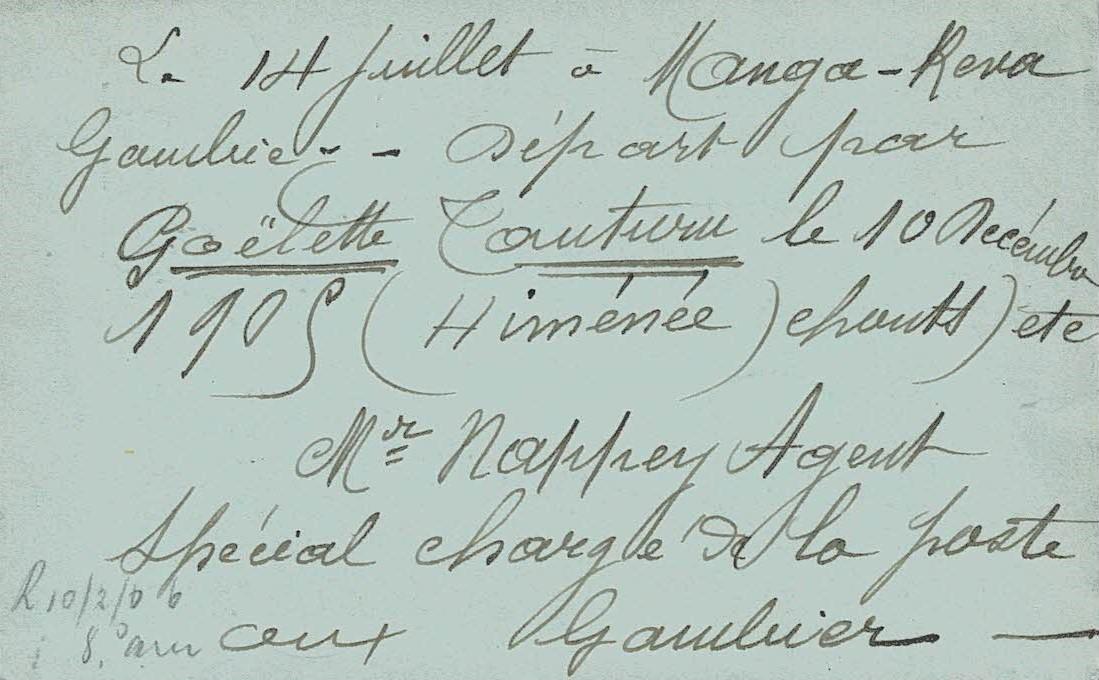 Le 14 Juillet à Manga-Reva
Gambier - Départ par
Goëlette Tauturu le 10 Décembre
1905 (Himénée) chants) etc
Mr Nappey Agent
Spécial chargé de la poste
aux Gambier
R 10/2/06
8.